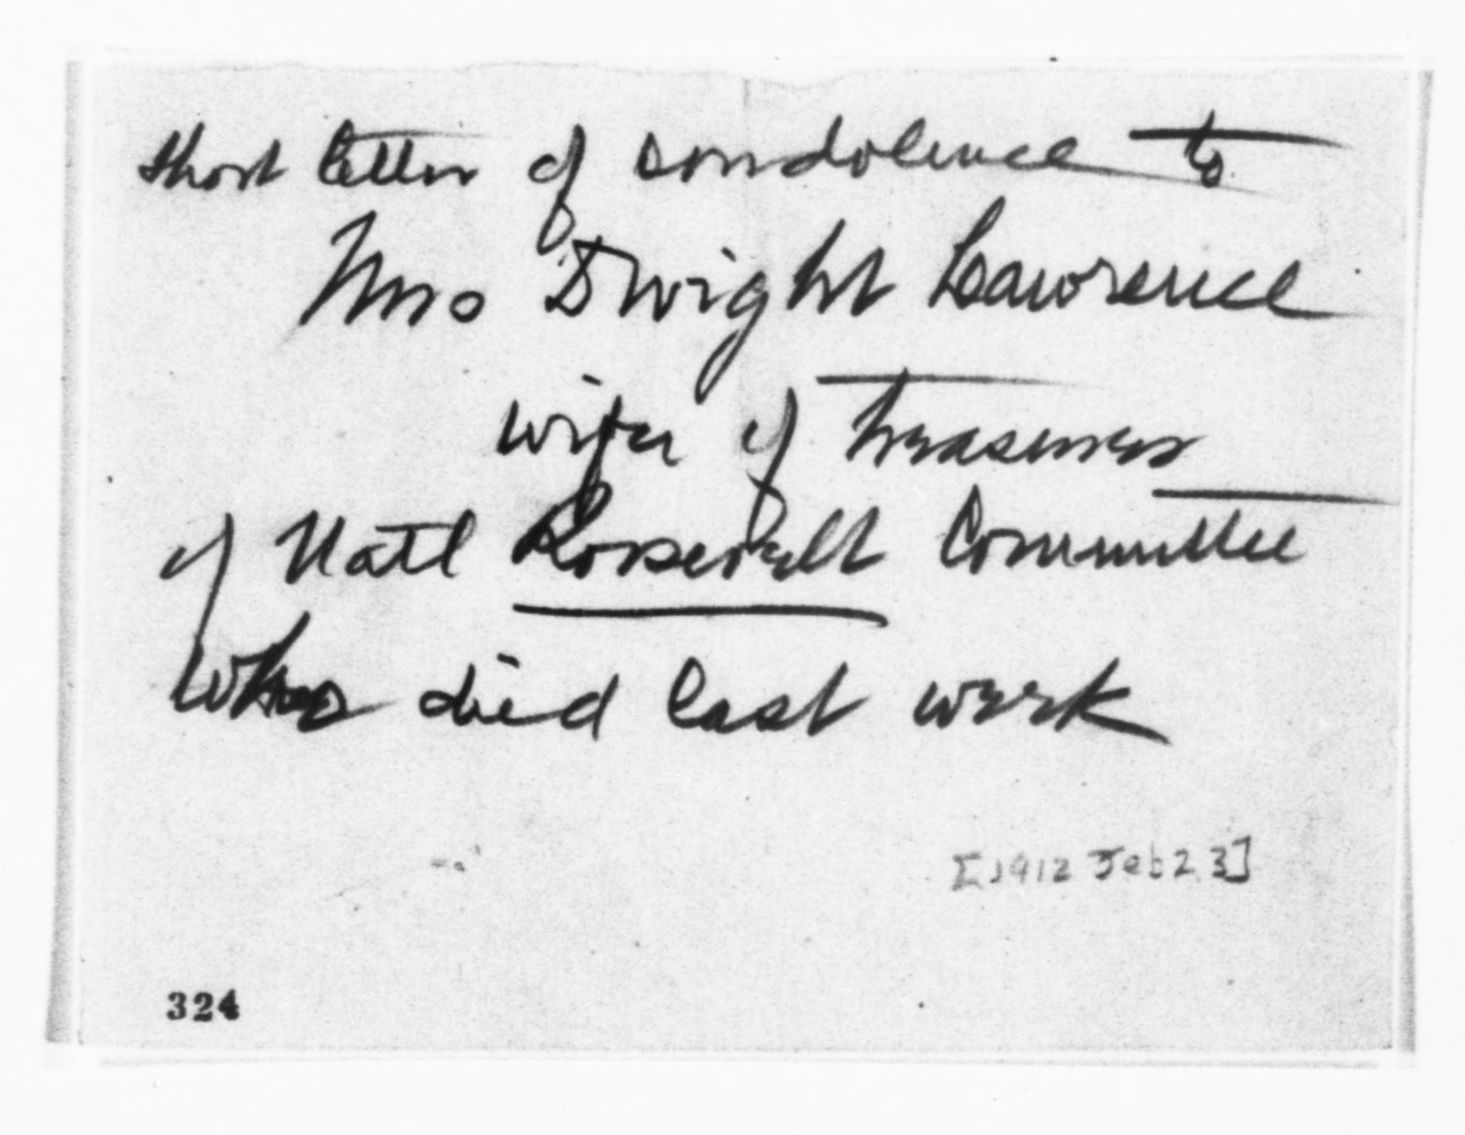 short letter of condolence to
Mrs Dwight Lawrence
wife of treasurer
of Natl Roosevelt Committee
who died last week
[1912 Feb 23]
324